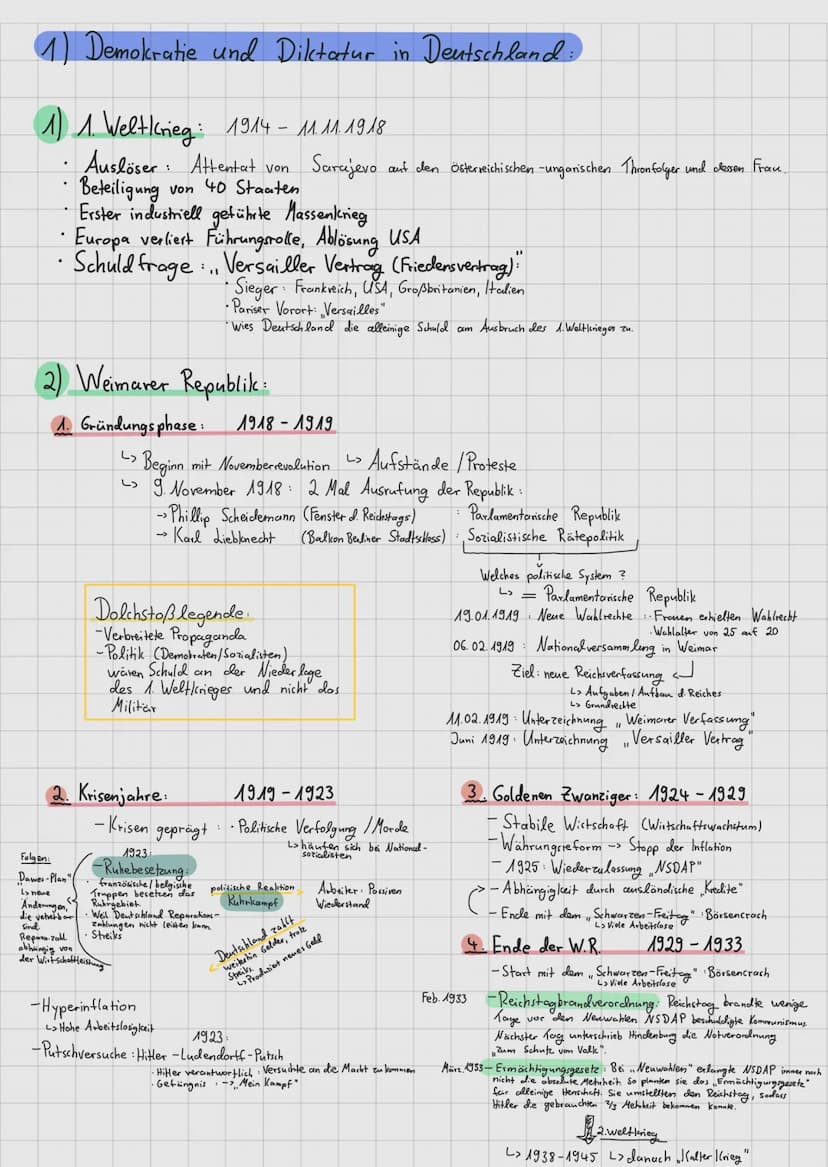 1) Demokratie und Diktatur in Deutschland:
1) 1. Weltkrieg: 1914 - 11.11.1918
· Auslöser: Attentat von Sarajevo auf den österreichischen-ungarischen Thronfolger und dessen Frau.
· Beteiligung von 40 Staaten
· Erster industriell geführte Massenkrieg
· Europa verliert Führungsrolle, Ablösung USA
· Schuldfrage: „Versailler Vertrag (Friedensvertrag):"
· Sieger: Frankreich, USA, Großbritanien, Italien
· Pariser Vorort: „Versailles"
· Wies Deutschland die alleinige Schuld am Ausbruch des 1. Weltkrieges zu.
2) Weimarer Republik:
1. Gründungsphase: 1918 - 1919
↳ Beginn mit Novemberrevolution ↳ Aufstände / Proteste
↳ 9. November 1918: 2 Mal Ausrufung der Republik:
→ Phillip Scheidemann (Fenster d. Reichstags) : Parlamentarische Republik
→ Karl Liebknecht (Balkon Berliner Stadtschloss) : Sozialistische Rätepolitik
Welches politische System?
↳ = Parlamentarische Republik
19.01.1919: Neue Wahlrechte: · Frauen erhielten Wahlrecht
· Wahlalter von 25 auf 20
06.02.1919: Nationalversammlung in Weimar
Ziel: neue Reichsverfassung
↳ Aufgaben / Aufbau d. Reiches
↳ Grundrechte
11.02.1919: Unterzeichnung „Weimarer Verfassung"
Juni 1919: Unterzeichnung „Versailler Vertrag"
Dolchstoßlegende:
- Verbreitete Propaganda
- Politik (Demokraten/Sozialisten)
wären Schuld an der Niederlage
des 1. Weltkrieges und nicht das
Militär
2. Krisenjahre: 1919 - 1923
- Krisen geprägt: · Politische Verfolgung / Morde
↳ häufen sich bei National-
sozialisten
1923:
- Ruhebesetzung:
· französische / belgische
Truppen besetzen das
Ruhrgebiet
· Weil Deutschland Reparation-
zahlungen nicht leisten kann
· Streiks
Folgen:
"Dawes-Plan"
↳ neue
Änderungen,
die
sind
Reparazahl
abhängig von
der Wirtschaftleistung
politische Reaktion
Ruhrkampf
Arbeiter: Passiven
Wiederstand
Deutschland zahlt
weiterhin Gelder, trotz
Streiks.
↳ Produziert neues Geld
- Hyperinflation
↳ Hohe Arbeitslosigkeit
1923:
- Putschversuche: Hitler - Ludendorff - Putsch
· Hitler verantwortlich: Versuchte an die Macht zu kommen
· Gefängnis: → „Mein Kampf"
3. Goldenen Zwanziger: 1924 - 1929
- Stabile Wirtschaft (Wirtschaftswachstum)
- Währungsreform → Stopp der Inflation
- 1925: Wiederzulassung „NSDAP"
- Abhängigkeit durch ausländische „Kredite"
- Ende mit dem „Schwarzen-Freitag": Börsencrach
↳ Viele Arbeitslose
4. Ende der W.R. 1929 - 1933
- Start mit dem „Schwarzen-Freitag": Börsencrach
↳ Viele Arbeitslose
Feb. 1933 - Reichstagbrandverordnung: Reichstag brandte wenige
Tage vor den Neuwahlen NSDAP beschuldigte Kommunismus.
Nächster Tag unterschrieb Hindenburg die Notverordnung
„zum Schutz von Volk".
März. 1933 - Ermächtigungsgesetz: Bei „Neuwahlen" erlangte NSDAP immer noch
nicht die absolute Mehrheit. So planten sie das „Ermächtigungsgesetz"
für alleinige Herrschaft. Sie umstellten den Reichstag, sodass
Hitler die gebrauchten 2/3 Mehrheit bekommen konnte.
2. Weltkrieg
↳ 1938 - 1945 ↳ danach „Kalter Krieg"